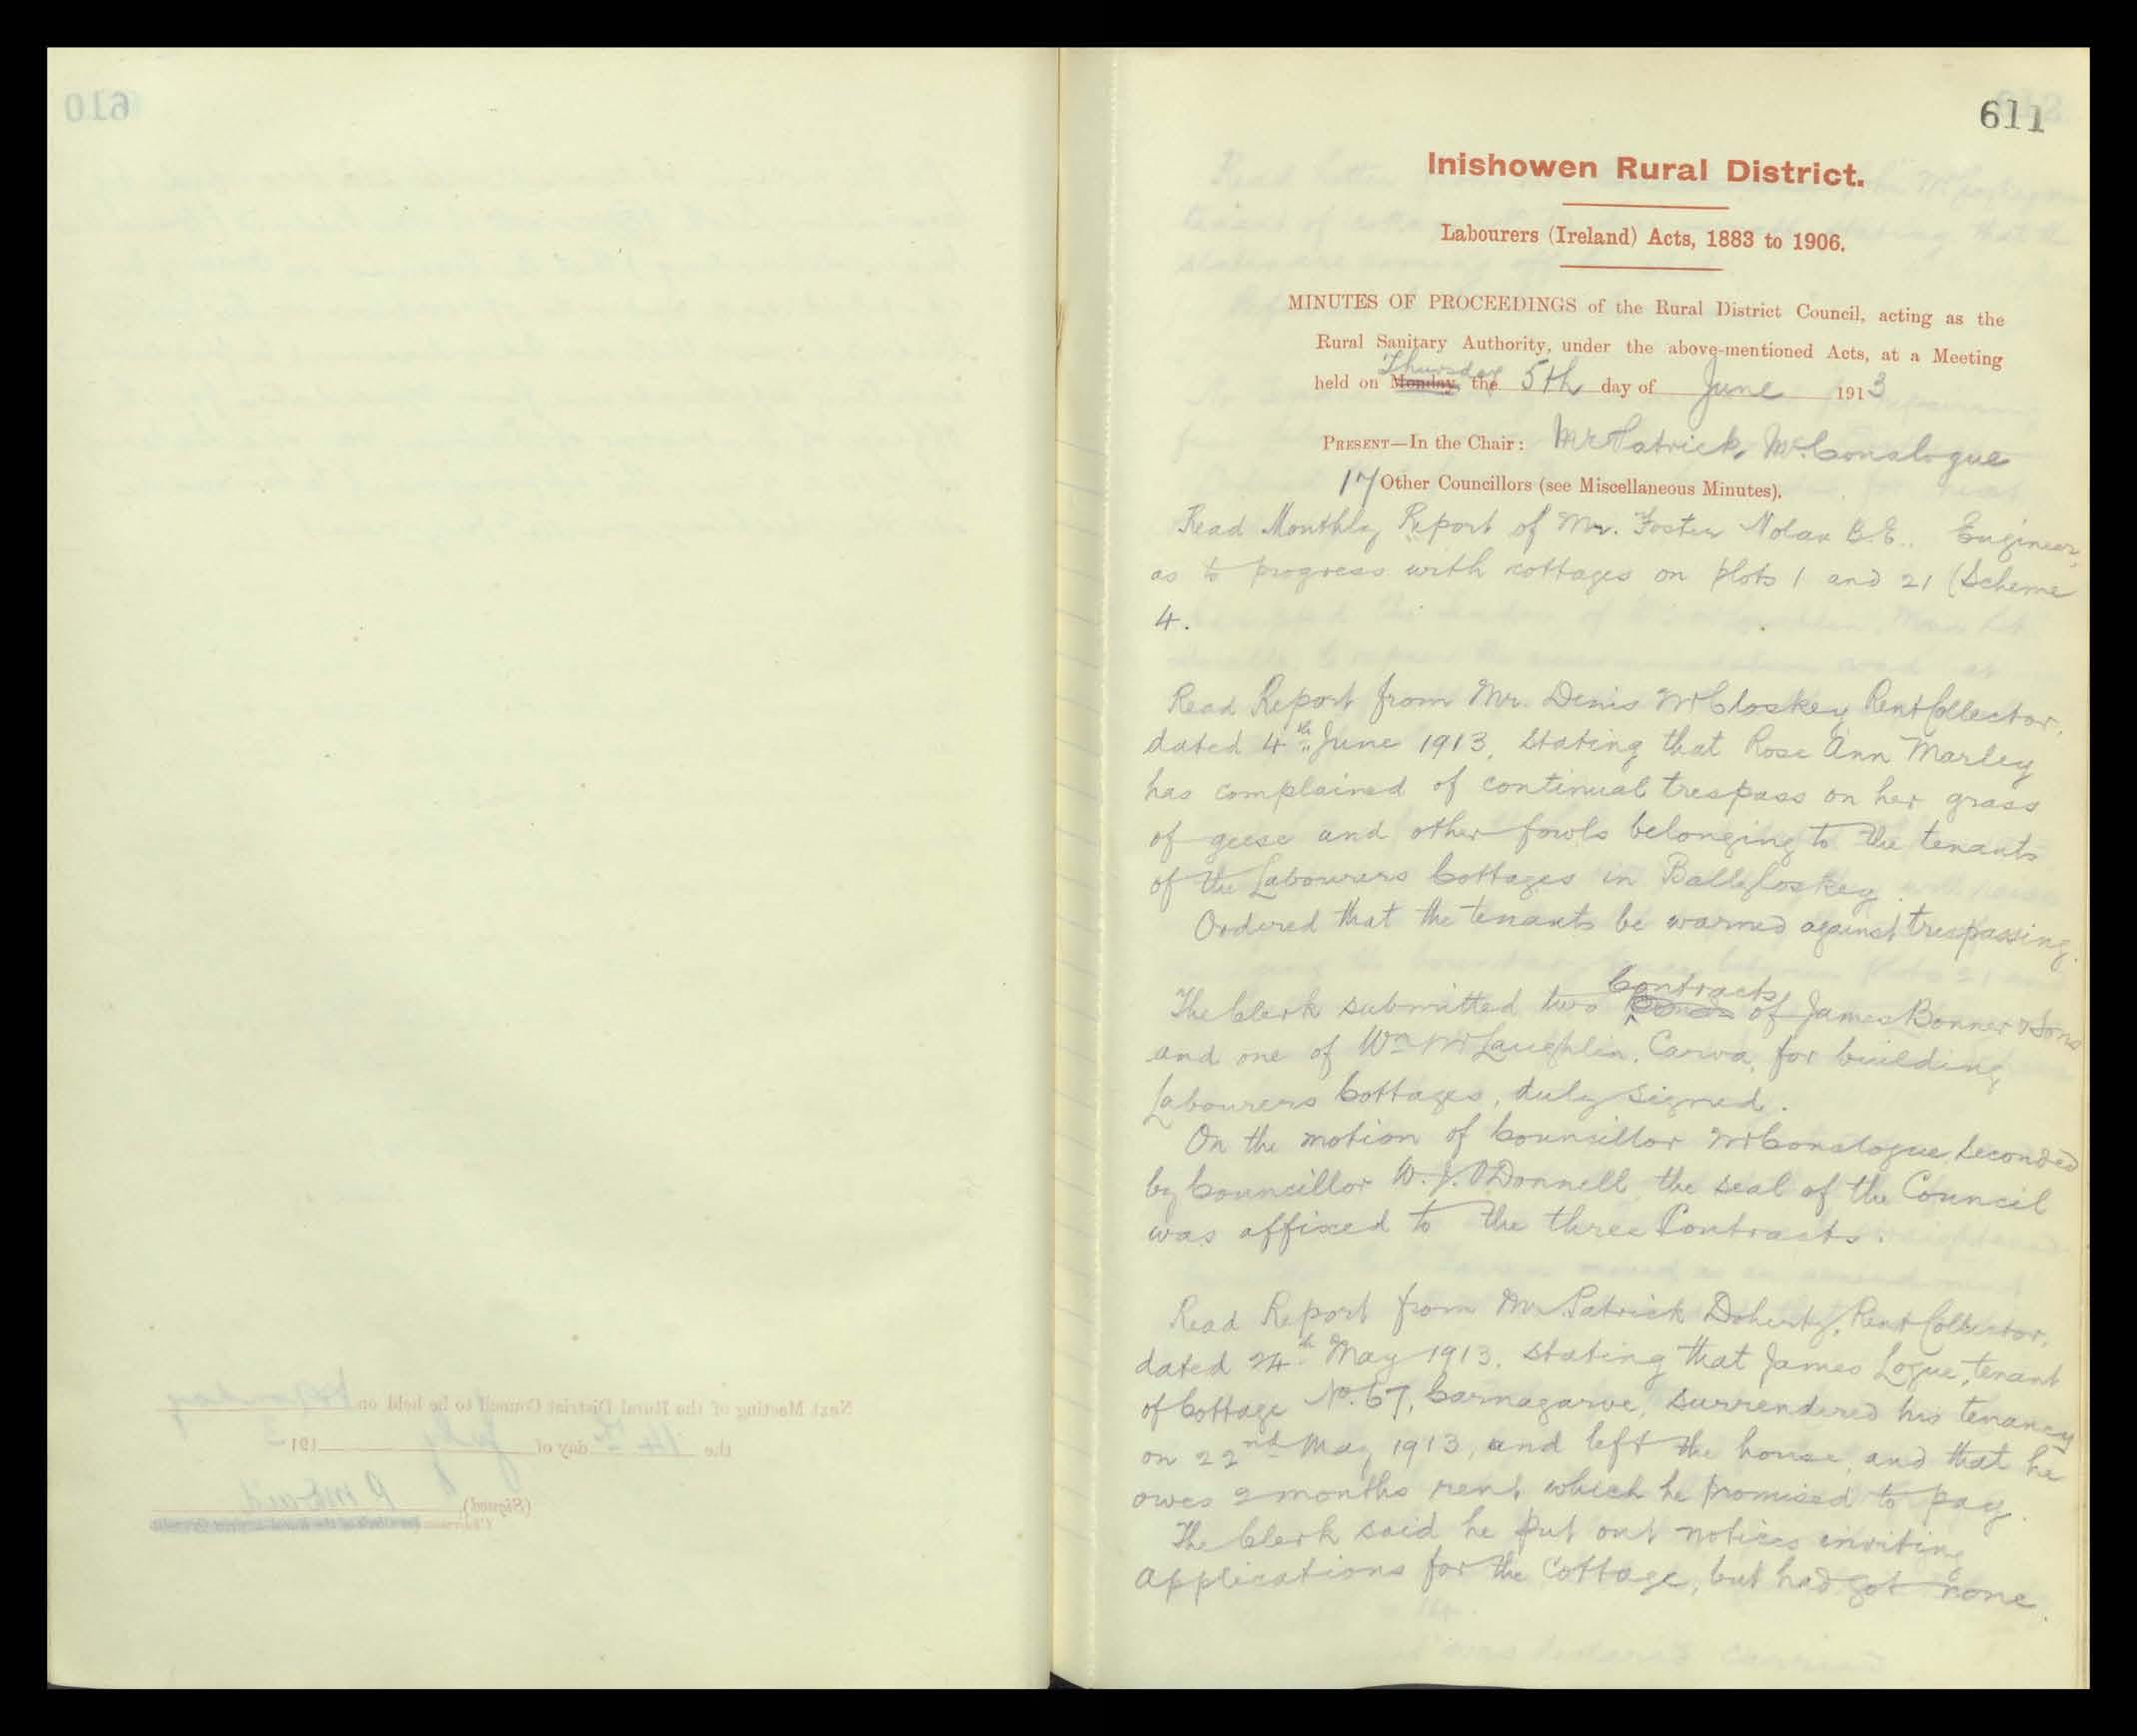 611
Inishowen Rural District.
Labourers (Ireland) Acts, 1883 to 1906.
MINUTES OF PROCEEDINGS of the Rural District Council, acting as the
Rural Sanitary Authority, under the above-mentioned Acts, at a Meeting
held on Monday, Thursday the 5th day of June 1913
PRESENT—In the Chair: Mr Patrick McConalogue
17 Other Councillors (see Miscellaneous Minutes).
Read Monthly Report of Mr. Foster Nolan B.E. Engineer,
as to progress with cottages on plots 1 and 21 (Scheme
4.
Read Report from Mr. Denis McCloskey Rent Collector,
dated 4th June 1913, stating that Rose Ann Marley
has complained of continual trespass on her grass
of geese and other fowls belonging to the tenants
of the Labourers Cottages in Balleloskey.
Ordered that the tenants be warned against trespassing.
The Clerk submitted two Contracts of James Bonner & Sons
and one of Wm McLaughlin, Carva, for building
Labourers Cottages, duly signed.
On the motion of Councillor McConalogue, seconded
by Councillor W. J. O'Donnell the seal of the Council
was affixed to the three Contracts.
Read Report from Mr Patrick Doherty, Rent Collector,
dated 24th May 1913, stating that James Logue, tenant
of Cottage No. 67, Carnagarve, surrendered his tenancy
on 22nd May 1913, and left the house, and that he
owes 2 months rent which he promised to pay.
The Clerk said he put out notices inviting
applications for the Cottage, but had got none.